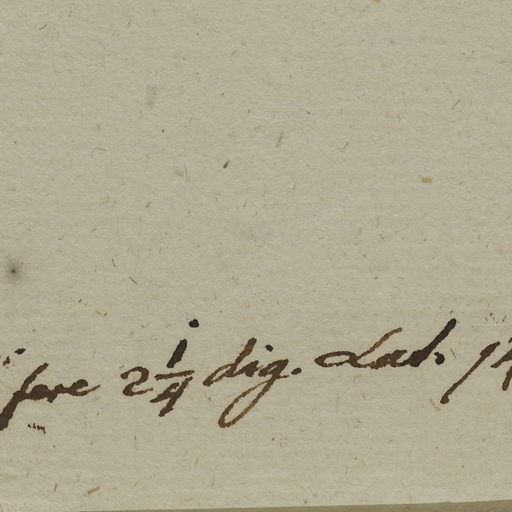 fere 2 1/4 dig. Lat. 1